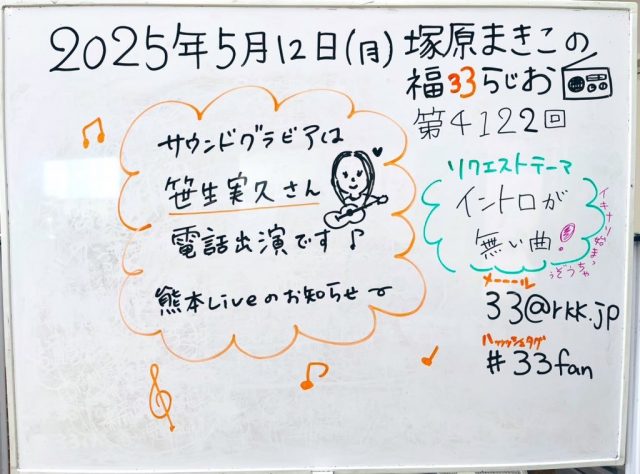 2025年5月12日(月) 塚原まきこの
福33らじお
第4122回
サウンドグラビアは
笹生実久さん
電話出演です♪
熊本Liveのお知らせ
リクエストテーマ
イントロが
無い曲
イキナリ始まっ
ちゃうぞ
メーール
33@rkk.jp
ハッッシュタグ
#33fan